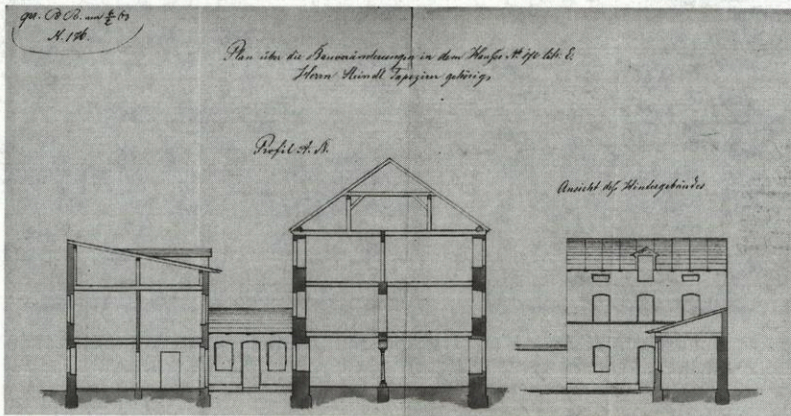 N. 176.
Plan über die Bauveränderungen in dem Hause N: lit: E:
Herrn Tapezier gehörig,
Profil A. B.
Ansicht des Hintergebäudes